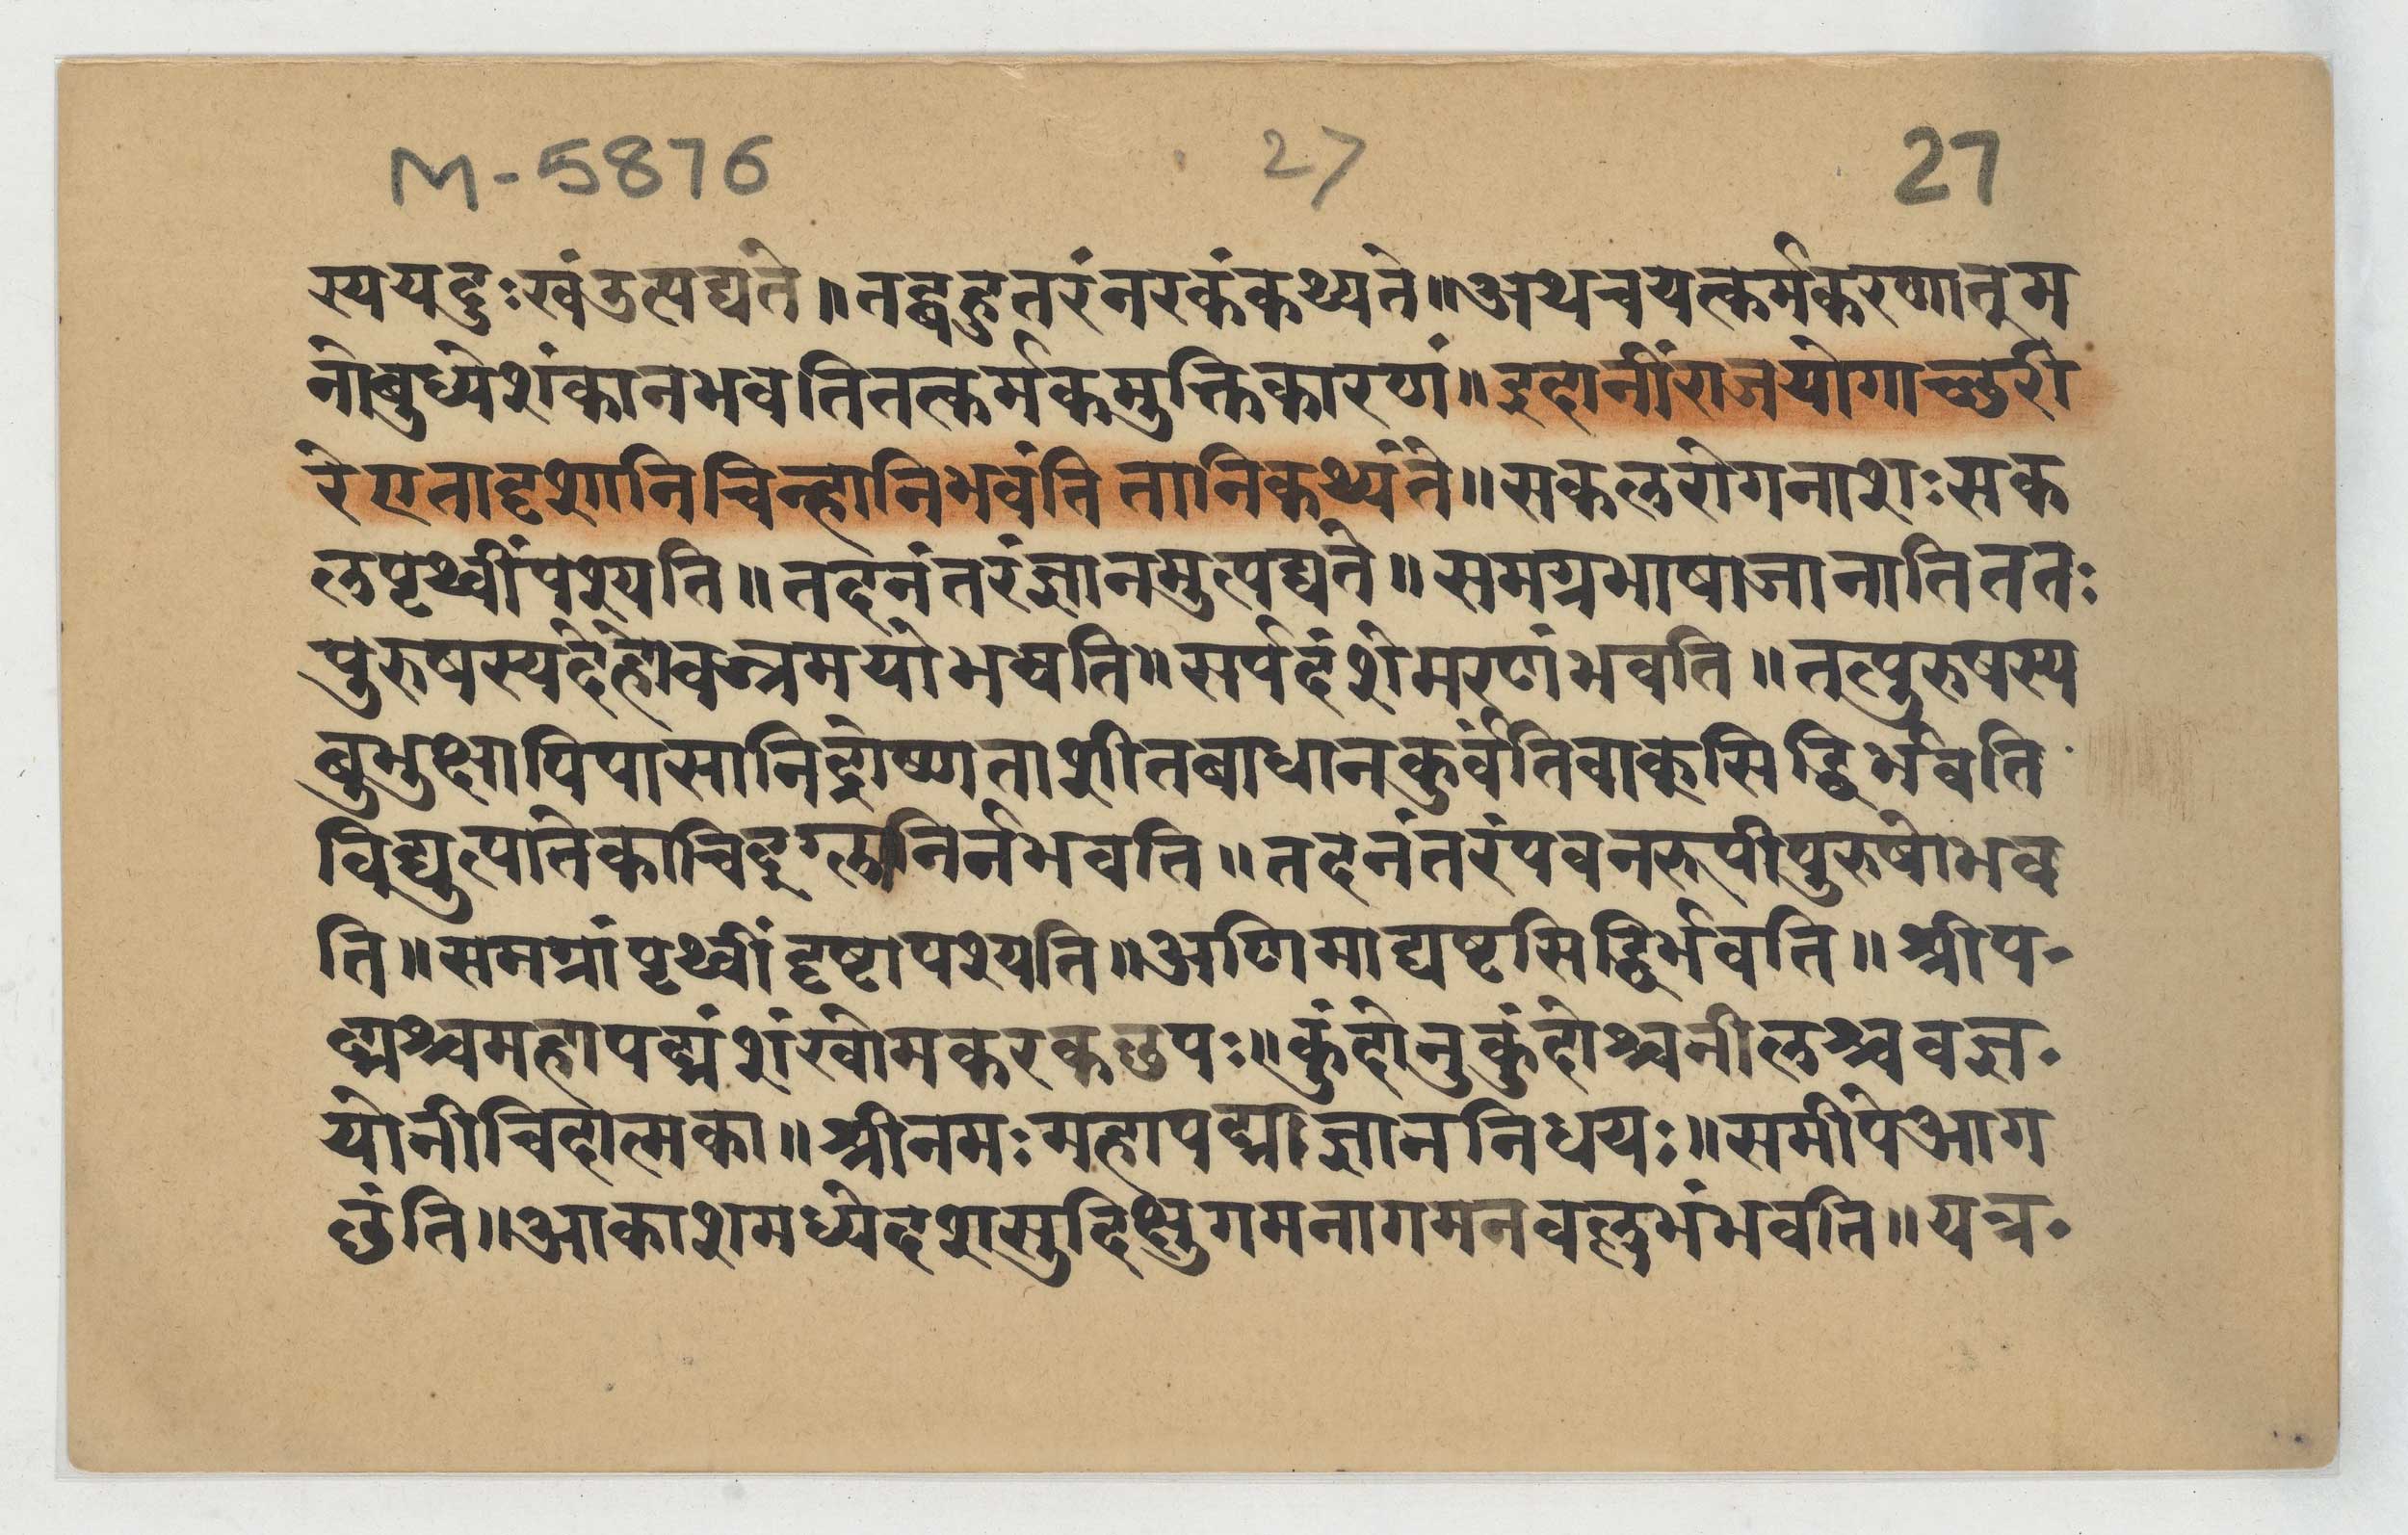 M-5876 27 27
स्ययदुःखंउत्पद्यते॥तद्बहुतरंनरकंकथ्यते॥अथचयत्कर्मकरणात्म
नोबुध्येशंकानभवतितत्कर्मकमुक्तिकारणं॥इदानींराजयोगाच्छरी
रेएतादृशानिचिन्हानिभवंति तानिकथ्यंते॥सकलरोगनाशःसक
लपृथ्वींपश्यति॥तदनंतरंज्ञानमुत्पद्यते॥समग्रभाषाजानातिततः
पुरुषस्यदेहोवज्रमयोभवति॥सर्पदंशेमरणंभवति॥तत्पुरुषस्य
बुभुक्षापिपासानिद्रोष्णताशीतबाधानकुर्वंतिवाक्सिद्धिर्भवति
विद्युत्पातेकाचिद्ग्लानिर्नभवति॥तदनंतरंपवनरूपीपुरुषोभव
ति॥समग्रांपृथ्वींदृष्टापश्यति॥अणिमाद्यष्टसिद्धिर्भवति॥श्रीप॰
द्मश्चमहापद्मंशंखोमकरकछपः॥कुंदोनुकुंदोश्चनीलश्चवज्र॰
योनीचिदात्मका॥श्रीनमःमहापद्माज्ञाननिधयः॥समीपेआग
छंति॥आकाशमध्येदशसुदिक्षुगमनागमनवल्लभंभवति॥यत्र॰